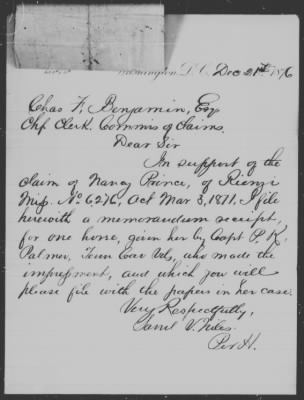 Washington, D.C. Dec 21st 1876
Chas F. Benjamin, Esq
Chf. Clerk. Commis of Claims
Dear Sir
In support of the
claim of Nancy Prince, of Rienzi
Miss. No 6,276, Act Mar 3, 1871. I file
herewith a memorandum receipt,
for one horse, given her by Capt P. K.
Palmer, Tenn Cav Vols, who made the
impressment, and which you will
please file with the papers in her case.
Very Respectfully,
Saml V. Niles.
Per H.